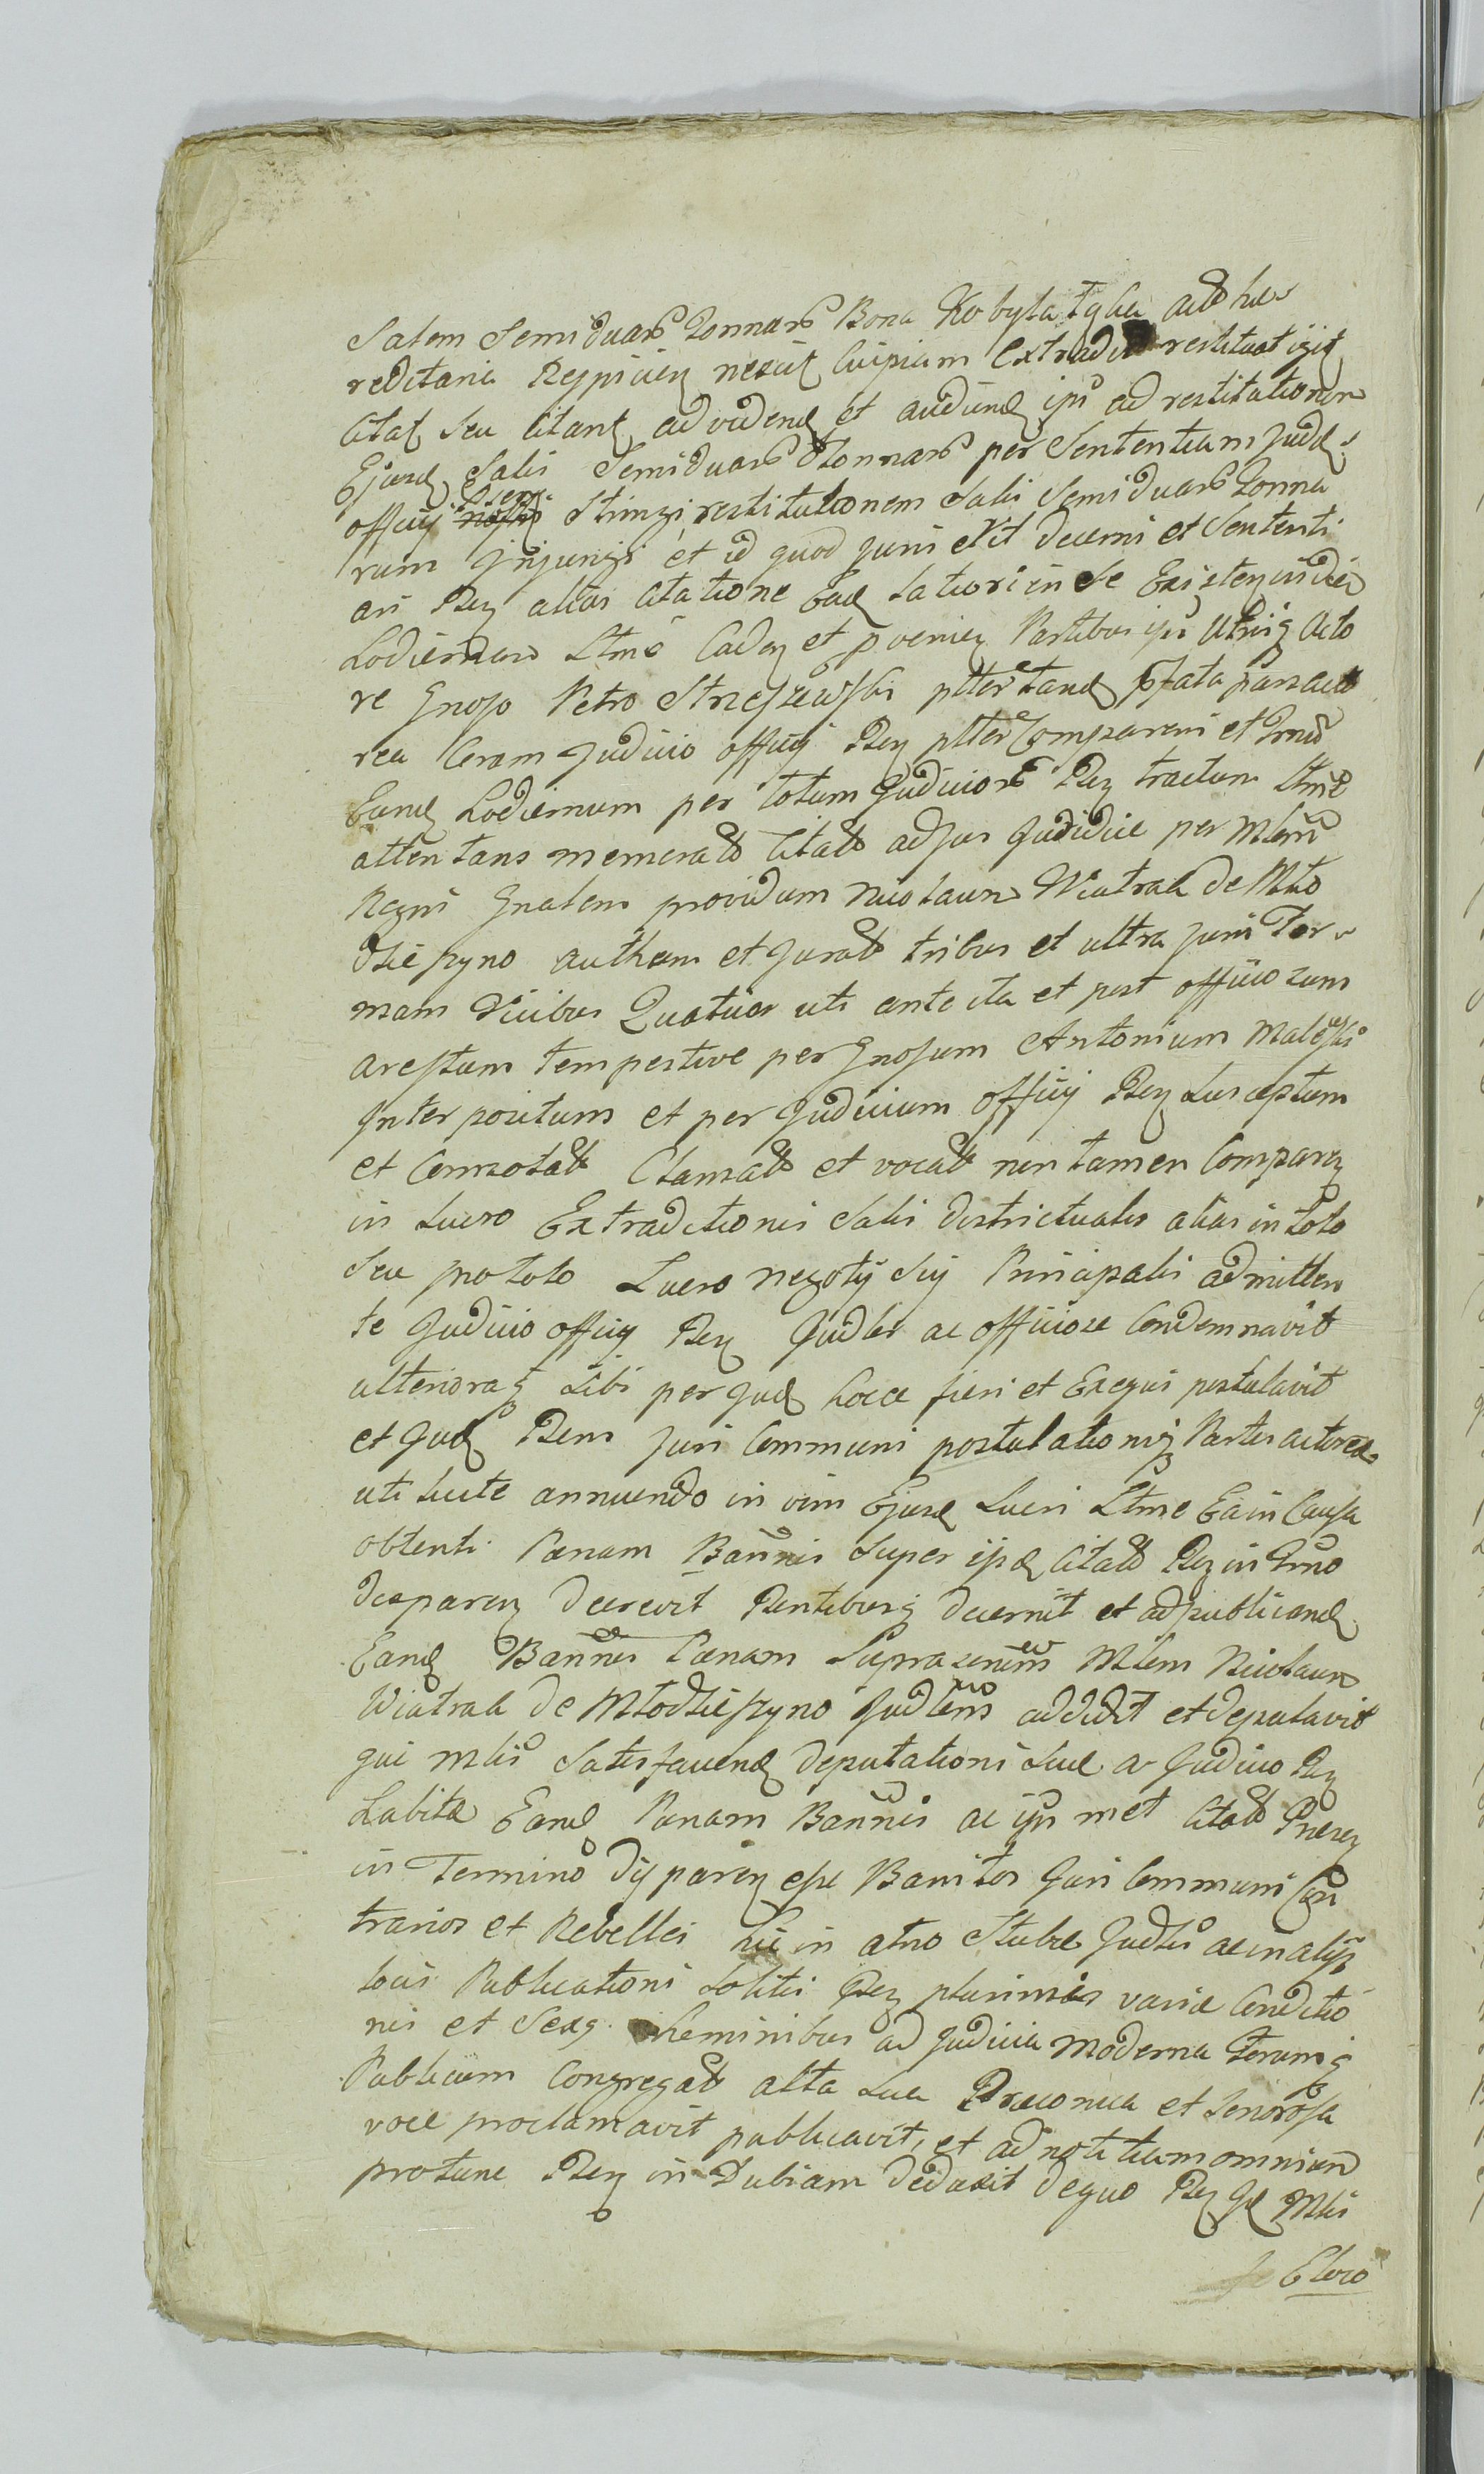 Salem Semiduar Tonnar Bona Kobyla tqua actt hæ
reditaria Respicien nescit Cuipiam Extradit restituat igit
Citat seu Citant ad videnđ et audienđ ips ad restitutionem
Ejusđ Salis Semiduar Tonnar per Sententiam Judđ
officij Psens Stringi, restitutionem Salis Semiduar Tonna
rum Injungi et id quod juris erit decerni et Sententi
ari Pns alias Citatione Eađ latiori in se Existen in diem
hodiernam Ltme Caden et proenien Partibus ips Utrisq Acto
re Gnoso Petro Strzeszewski pltter tanđ pfata pars acto
rea Coram Judicio officij Pns pltter Comparens et Trnũ
Eunđ hodiernum per totum Judicior Pns tractum Ltme
attentans memoratt Citatt ad jus Judidice per Mlem
Regni Gnalem providum Nicolaum Wiatrak de Mło
dzieszyno authem et juratt tribus et ultra juris for
mam vicibus Quatuor uti ante ita et post officiosum
arestum tempestive per Gnosum Antonium Maleski
Interpositum et per Judicium officij Pns Susceptum
et Connotatt Clamatt et vocatt non tamen Comparen
in lucro Extraditionis Salis districtualis alias in toto
seu pro toto Lucro negotij sui Principalis admitten
te Judicio officij Pns Judler ac officiose Condemnavit
ulterioraq sibi per Juđ hocce fieri et Exequi postulavit
et Juđ Pens juri Communi postulationiq Partis actoreæ
uti justæ annuendo in vim Ejusđ Lucri Ltme Ea in Causa
obtenti Pænam Bannis super ips Citatt Pns in Trno
disparen decrevit Pentibusq decernit et ad publicanđ
Eanđ Bannis Pænam Suprascriem Mlem Nicolaum
Wiatrak de Młodzieszyno Judlem addidit et deputavit
qui Mlis satisfacienđ deputationi suæ a Judicio Pns
habitæ Eanđ Pænam Bannis ac ips met Citatt Pnes
in Termino disparen esse Banitos Juri Communi Con
trarios et Rebelles hic in atrio Stubæ Judlis ac in alijs
locis Publicationi Solitis Pns plurimis variæ Conditio
nis et Sexq hominibus ad Judicia moderna forumq
Publicum Congregatt alta sua Præconica et Sonorosa
voce proclamavit publicavit, et ad notitiam omnium
protunc Pns in Dubiam deduxit de quo Pns Jđ Mlis